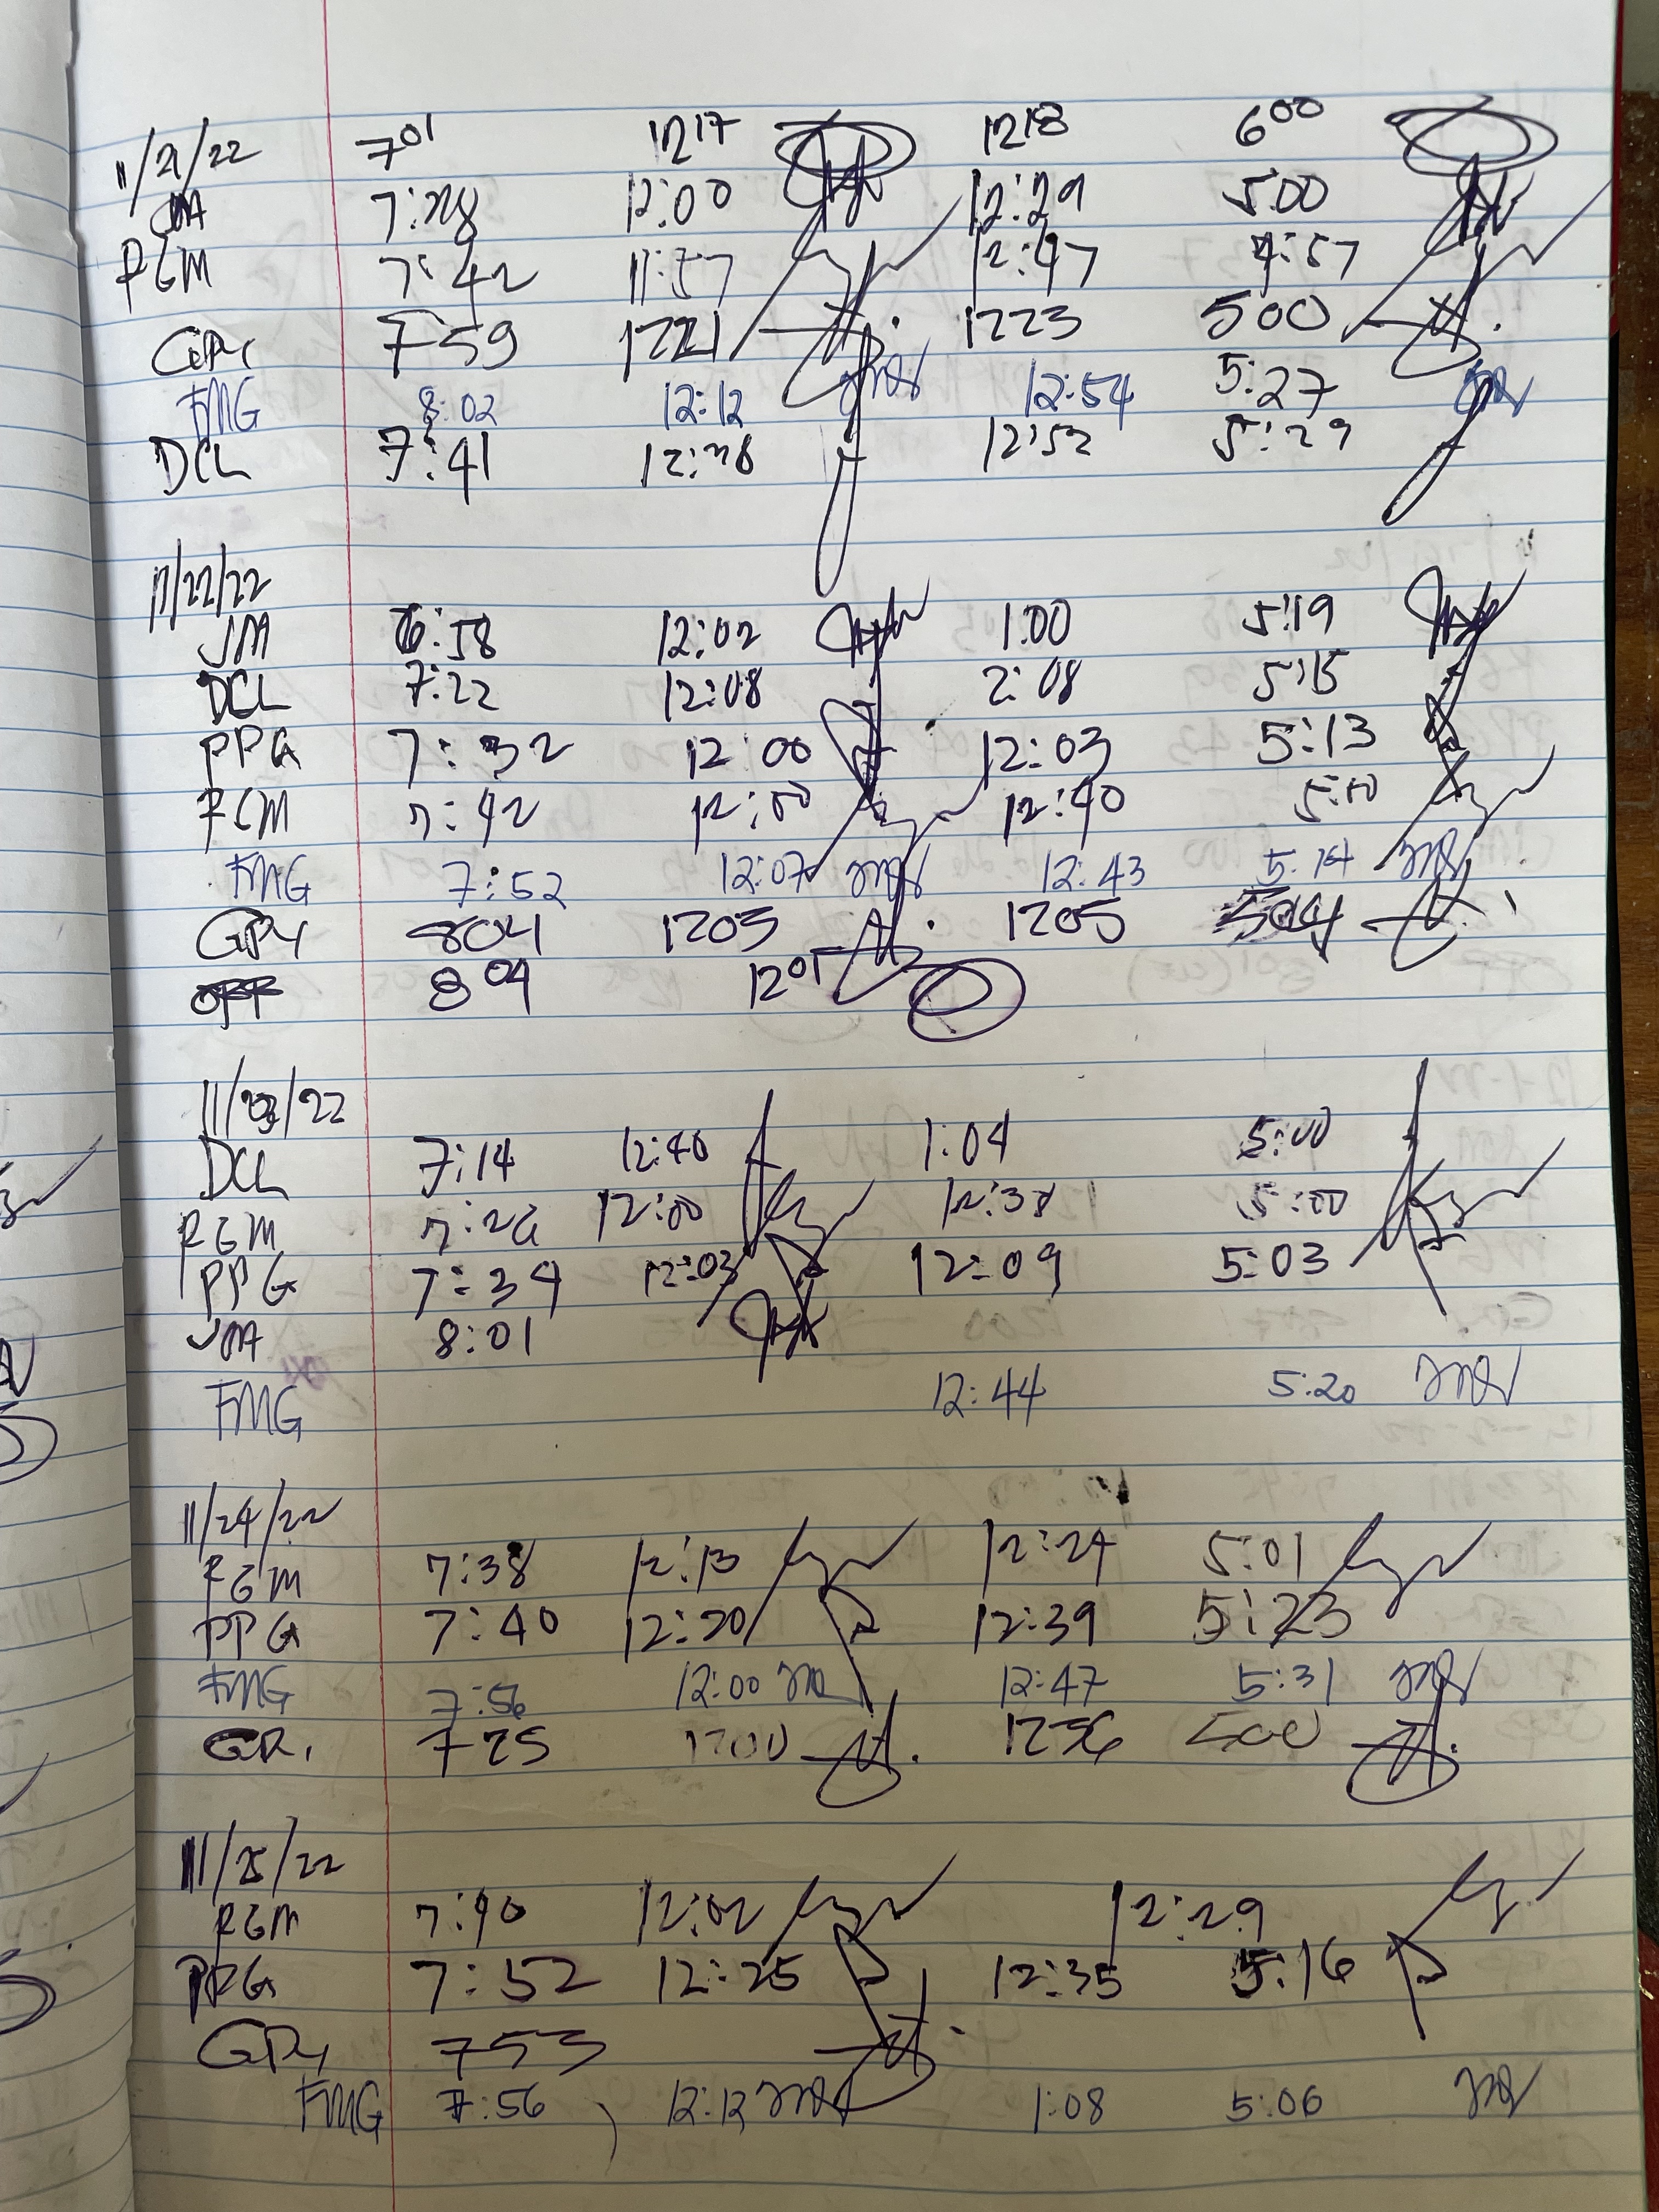 11/21/22 701 1217 1218 600
JM 7:28 12:00 12:29 5:00
RGM 7:42 11:57 12:47 4:57
GR 759 1221 1223 500
FMG 8:02 12:12 12:54 5:27
DCL 7:41 12:38 12:52 5:29
11/22/22
JM 6:58 12:02 1:00 5:19
DCL 7:22 12:08 2:08 5:15
PPG 7:32 12:00 12:03 5:13
RGM 7:42 12:00 12:40 5:00
FMG 7:52 12:07 12:43 5:14
GR 804 1203 1205 504
OFF 809 1201
11/23/22
DCL 7:14 12:40 1:04 5:00
RGM 7:26 12:00 12:38 5:00
PPG 7:34 12:03 12:09 5:03
JM 8:01
FMG 12:44 5:20
11/24/22
RGM 7:38 12:13 12:24 5:01
PPG 7:40 12:20 12:39 5:23
FMG 7:56 12:00 12:47 5:31
GR 725 1200 1256 500
11/25/22
RGM 7:40 12:02 12:29
PPG 7:52 12:25 12:35 5:16
GR 753
FMG 7:56 12:12 1:08 5:06